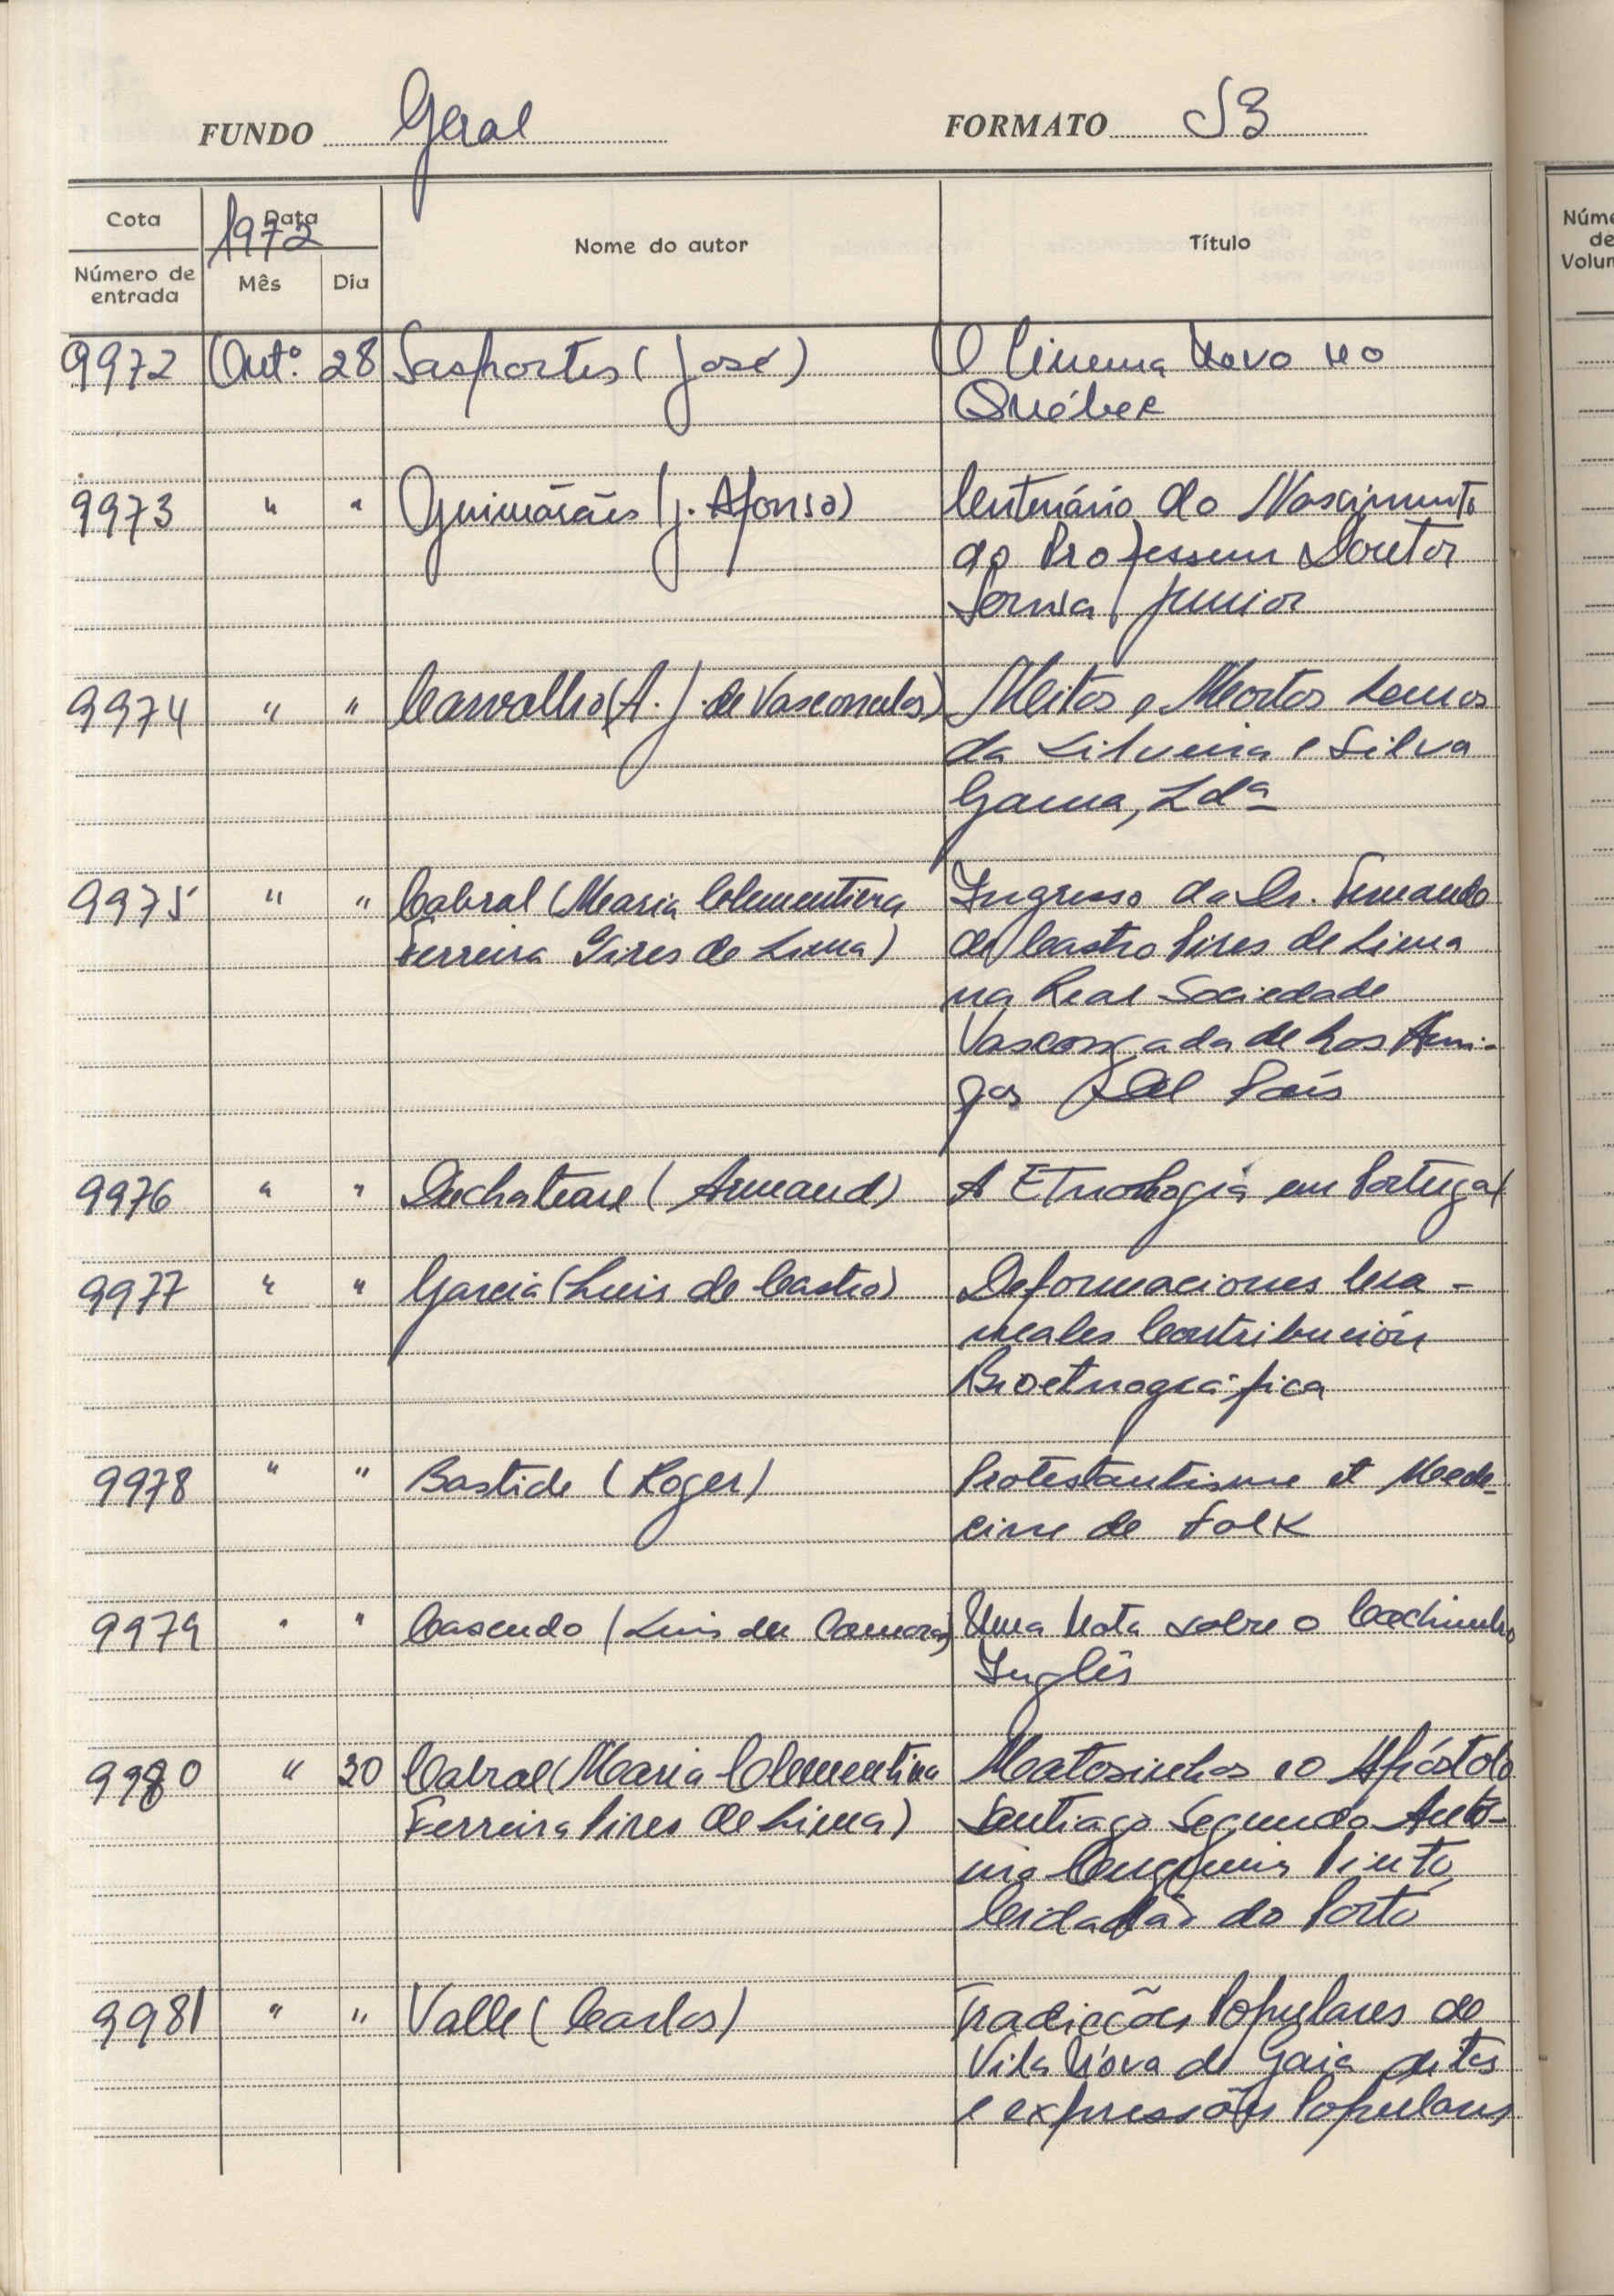 FUNDO Geral FORMATO S3
Cota Data Nome do autor Título
1972
Número de entrada Mês Dia
9972 Outº. 28 Sasportes (José) O Cinema Novo no
Québec
9973 " " Guimarães (J. Afonso) Centenário do Nascimento
do Professor Doutor
Junior
9974 " " Carvalho (A. J. de Vasconcelos) Mitos e Mortos Lemos
da Silveira e Silva
Gama, Ldª
9975 " " Cabral (Maria Clementina Ingresso do Dr. Fernando
Ferreira Pires de Lima) de Castro Pires de Lima
na Real Sociedade
Vascongada de Los Ami-
gos Del País
9976 " " (Armand) A Etnologia em Portugal
9977 " " Garcia (Luis de Castro) Deformaciones Cra-
neales Contribución
Bioetnográfica
9978 " " Bastide (Roger) Protestantisme et Mede-
cine de Folk
9979 " " Cascudo (Luis da Camara) Uma Nota sobre o Cachimbo
Inglês
9980 " 30 Cabral (Maria Clementina Matosinhos e o Apóstolo
Ferreira Pires de Lima) Santiago Segundo Antó-
nio Pinto
Cidadão do Porto
9981 " " Valle (Carlos) Tradicções Populares de
Vila Nova de Gaia ditos
e expressões Populares
Núme
de
Volum